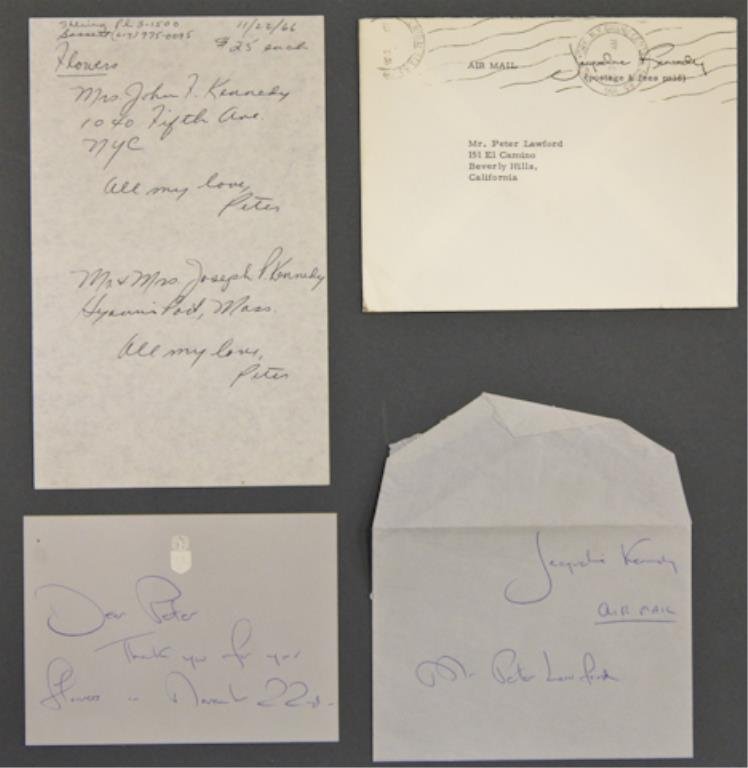 Pl 3-1500
11/22/66
$25 each
Flowers
Mrs. John F. Kennedy
1040 Fifth Ave.
NYC
All my love,
Peter
Mr & Mrs. Joseph P. Kennedy
Hyannis Port, Mass.
All my love,
Peter
AIR MAIL
Jacqueline Kennedy
(postage & fees paid)
Mr. Peter Lawford
151 El Camino
Beverly Hills,
California
Dear Peter
Thank you for your
flowers on November 22nd.
Jacqueline Kennedy
AIR MAIL
Mr Peter Lawford